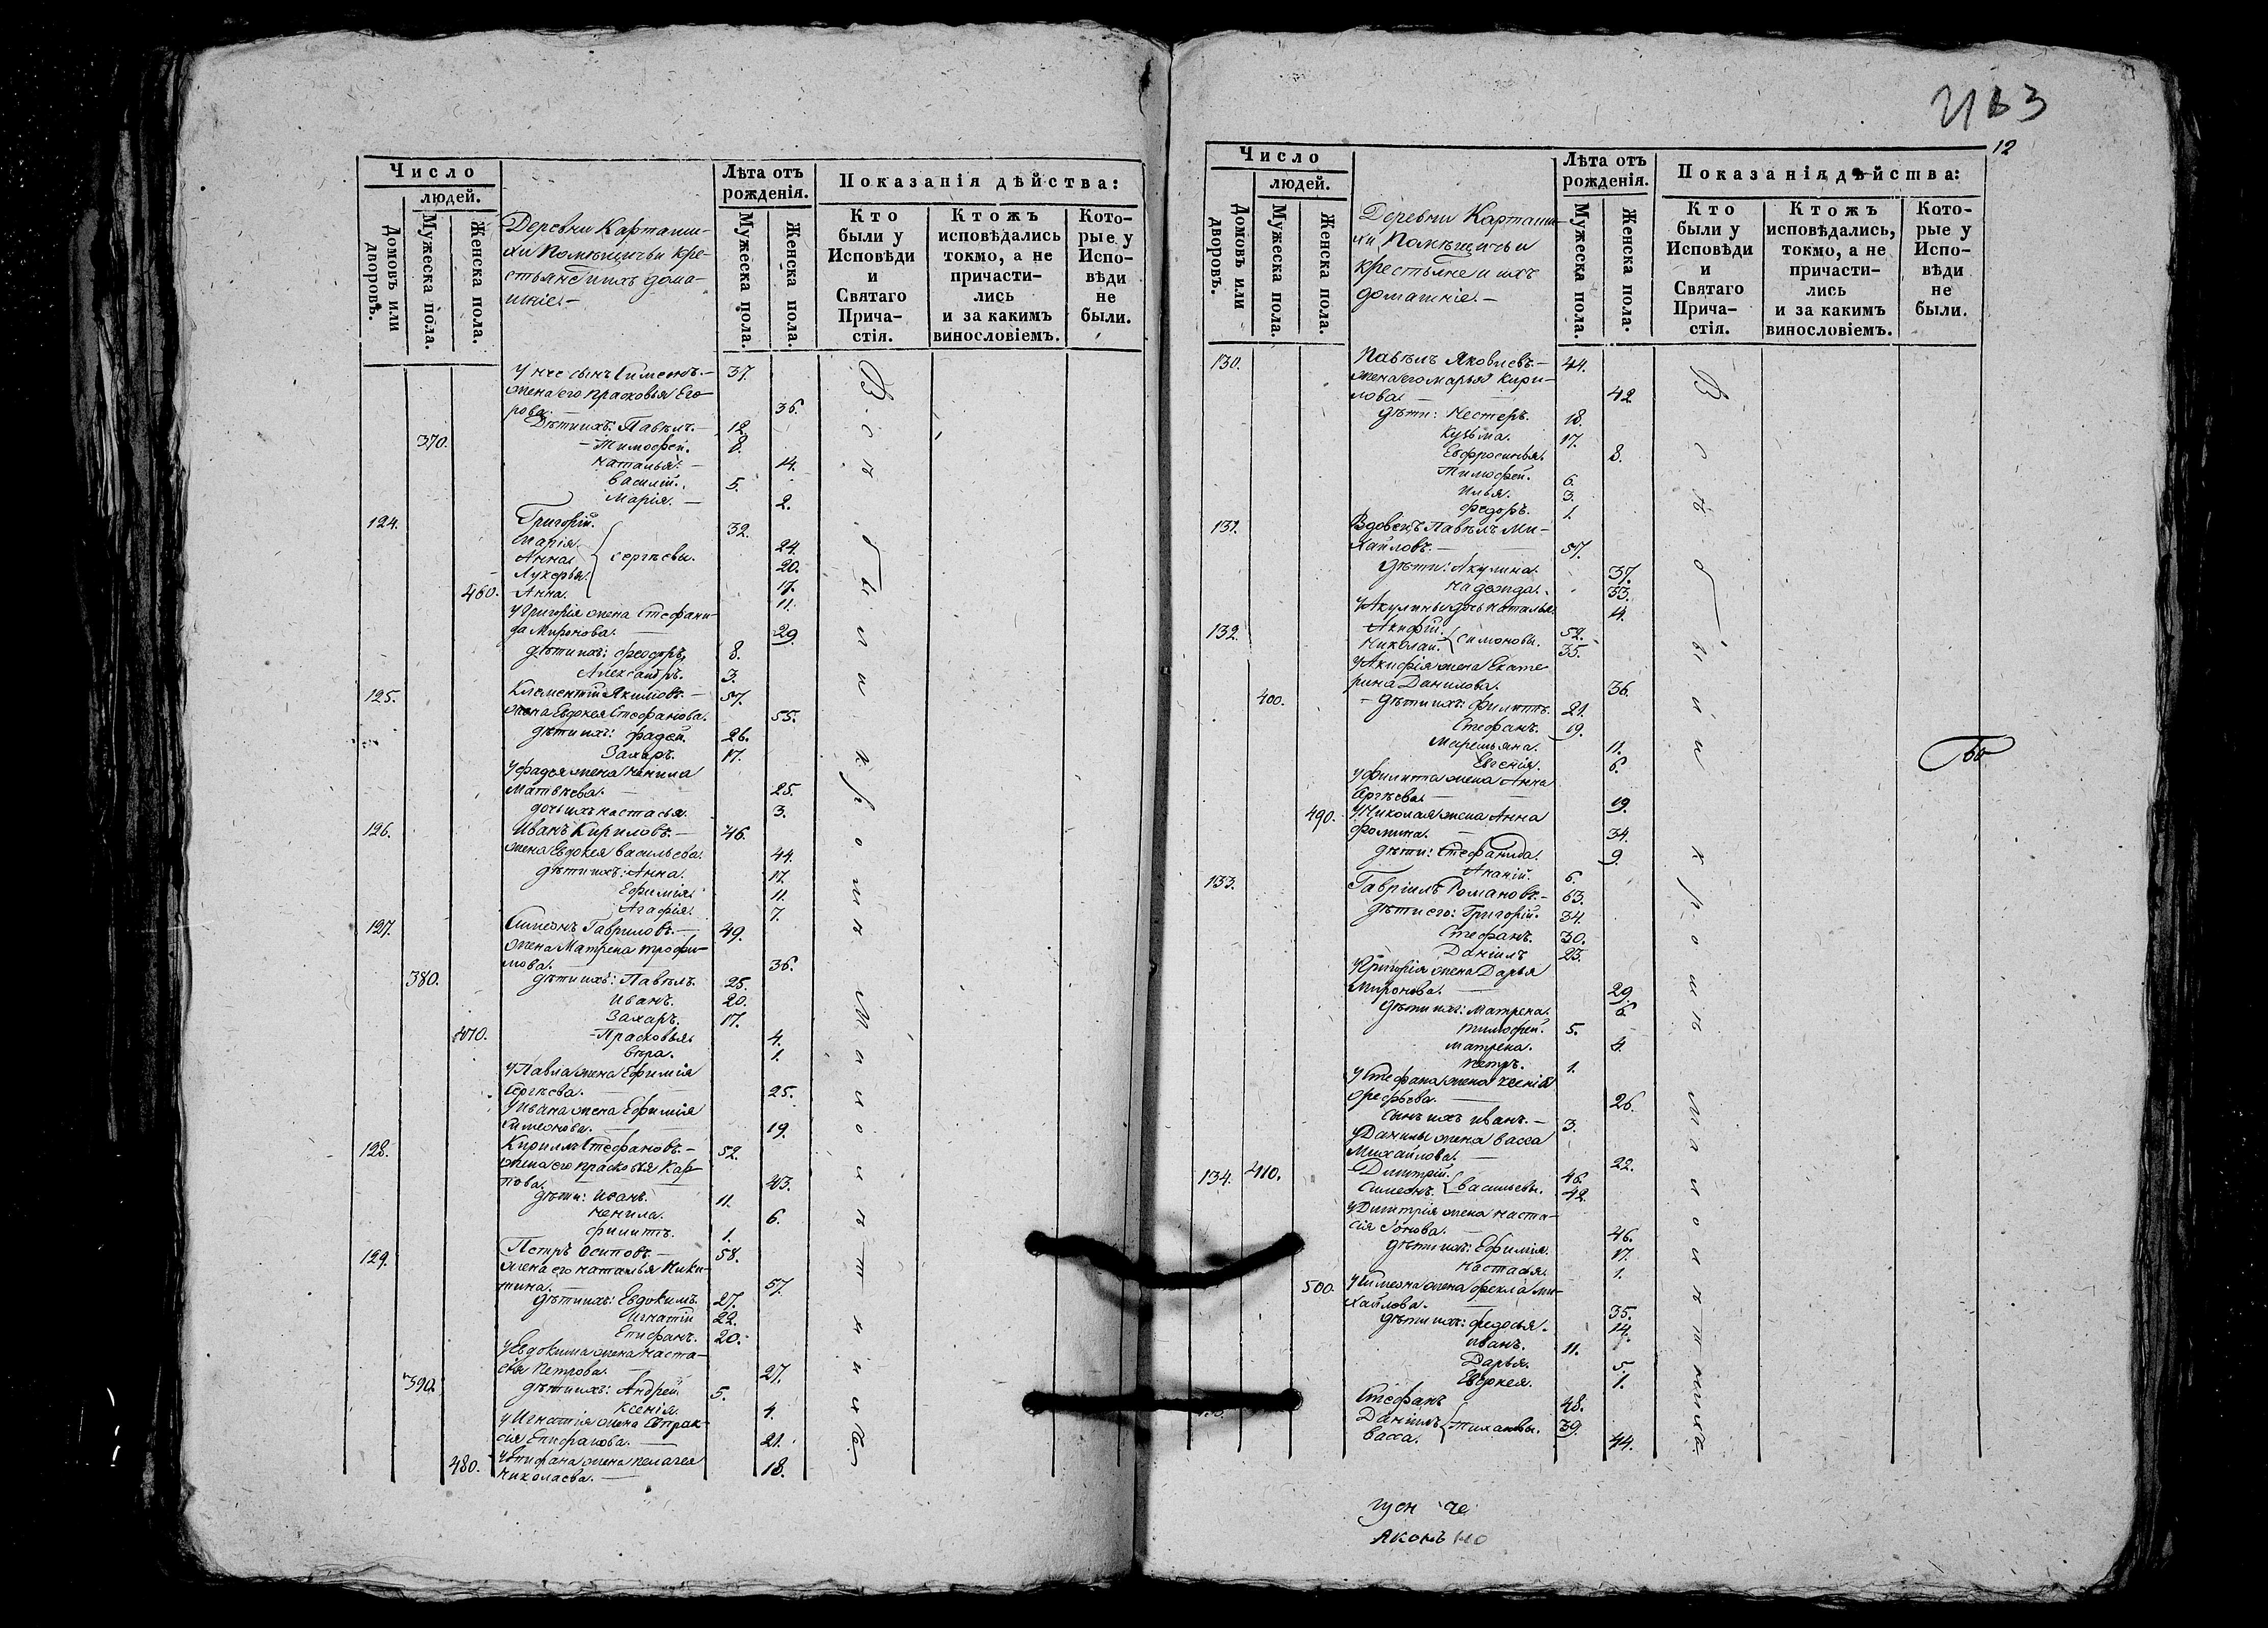 Число
людей.
Домовъ или дворовъ.
Мужеска пола.
Женска пола.
Деревни Карташи-
хи Помѣщичьи кре-
стьяне и ихъ дома-
шніе.-
Лѣта отъ рожденія.
Мужеска пола.
Женска пола.
Показанія дѣйства:
Кто были у Исповѣди и Святаго Прича-стія.
Ктожъ исповѣдались токмо, а не причасти-лись и за какимъ винословіемъ.
Кото-рые у Испо-вѣди не были.
У нее сынъ Симеонъ.- 37.
жена его Прасковья Его-
рова. 36.
Дѣти ихъ: Павелъ.- 12.
370. -Тимофей. 8.
Наталья.- 14.
Василій. 5.
Марія.- 2.
124. Григорій. 32.
Марія. 24.
Анна. Сергѣевы. 20.
Лукерья. 17.
460. Анна. 11.
У Григорія жена Стефани-
да Миронова. 29.
дѣти ихъ: Феодоръ. 8.
Александръ. 3.
125. Климентій Якимовъ.- 57.
жена Евдокея Стефанова. 55.
дѣти ихъ: Фадей. 26.
Захаръ. 17.
У Фадея жена Ненила
Матвѣева. 25.
дочь ихъ Настасья. 3.
126. Иванъ Кириловъ.- 46.
жена Евдокея Васильева. 44.
дѣти ихъ: Анна. 17.
Ефимія. 11.
Агафія. 7.
127. Симеонъ Гавриловъ.- 49.
жена Матрена Трофи-
мова. 36.
380. дѣти ихъ: Павелъ. 25.
Иванъ. 20.
Захаръ. 17.
470. -Прасковья. 4.
Вѣра. 1.
У Павла жена Ефимія
Сергѣева. 25.
У Ивана жена Ефимія
Симеонова. 19.
128. Кирилъ Стефановъ.- 52.
жена его Прасковья Кар-
пова. 43.
дѣти: Иванъ. 11.
Ненила. 6.
Филиппъ. 1.
129. Петръ Осиповъ.- 58.
жена его Наталья Ники-
тина. 57.
дѣти ихъ: Евдокимъ. 27.
Игнатій 22.
Епифанъ. 20.
У Евдокима жена Наста-
сья Петрова. 27.
390. дѣти ихъ: Андрей. 5.
Ксенія. 4.
У Игнатія жена Евпрак-
сія Епифанова. 21.
480. У Епифана жена Пелагея 18.
Николаева.
Всѣ были кромѣ малолѣтнихъ
2163
12
Число
людей.
Домовъ или дворовъ.
Мужеска пола.
Женска пола.
Деревни Карташи-
хи Помѣщичьи
крестьяне и ихъ
домашніе.-
Лѣта отъ рожденія.
Мужеска пола.
Женска пола.
Показанія дѣйства:
Кто были у Исповѣди и Святаго Прича-стія.
Ктожъ исповѣдались, токмо, а не причасти-лись и за какимъ винословіемъ.
Кото-рые у Испо-вѣди не были.
130. Павелъ Яковлевъ.- 44.
жена его Марья Кири-
лова. 42.
дѣти: Нестеръ. 18.
Кузьма. 17.
Евфросинья. 8.
Тимофей. 6.
Илья. 3.
Федоръ. 1.
131. Вдовецъ Павелъ Ми-
хайловъ. 57.
дѣти: Акулина. 37.
Надежда. 33.
У Акулины дочь Наталья 14.
132. Акифій. 52.
Николай. Симоновы. 35.
У Акифія жена Екате-
рина Данилова. 36.
400. -дѣти ихъ: Филиппъ. 21.
Стефанъ. 19.
Маремьяна. 11.
Евгенія. 6.
У Филиппа жена Анна
Сергѣева. 19.
490. У Николая жена Анна
Фомина. 34.
дѣти: Стефанида. 9.
Ананій. 6.
133. Гавріилъ Романовъ.- 63.
дѣти его: Григорій. 34.
Стефанъ. 30.
Даніилъ 23.
У Григорія жена Дарья
Миронова. 29.
дѣти ихъ: Матрена. 6.
Тимофей. 5.
Матрена. 4.
Петръ. 1.
У Стефана жена Ксенія
Орефьева. 26.
сынъ ихъ Иванъ.- 3.
У Данилы жена Васса
Михайлова. 22.
134. 410. Димитрій. 46.
Симеонъ. Васильевы. 42.
У Димитрія жена Наста-
сія Іонова. 46.
дѣти ихъ: Ефимія. 17.
Настасья. 1.
500. У Симеона жена Фекла Ми-
хайлова. 35.
дѣти ихъ: Федосья. 14.
Иванъ. 11.
Дарья. 5.
Евдокея. 1.
Стефанъ 48.
Даніилъ Тихановы. 39.
Васса. 44.
Всѣ были кромѣ малолѣтнихъ